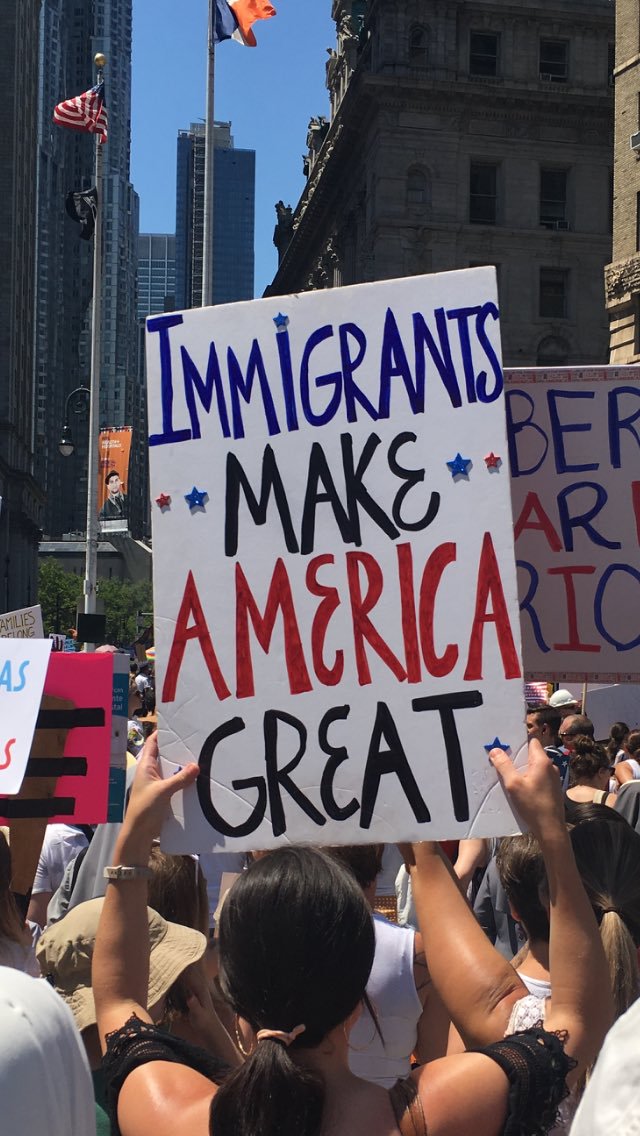 IMMIGRANTS
MAKE
AMERICA
GREAT
BER
AR
RIC
FAMILIES
BELONG
AS
S